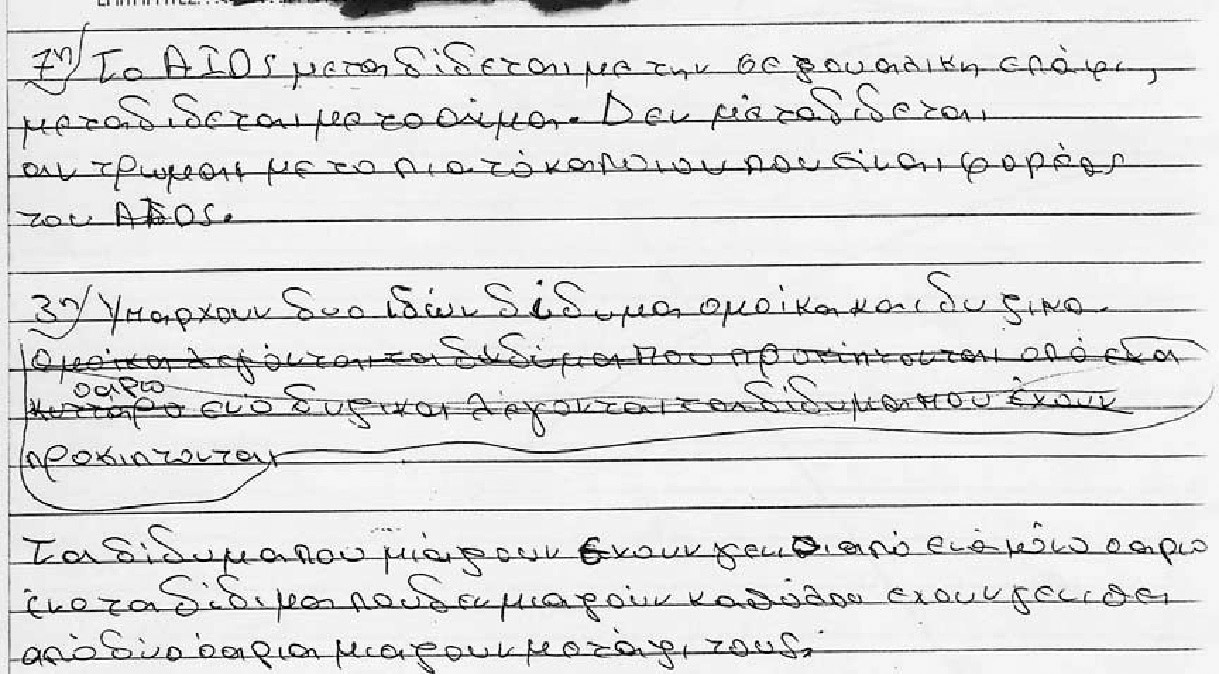 7η) Το AIDS μεταδίδεται με την σεξουαλικη επάφι,
μεταδιδεται με το αίμα. Δεν μεταδιδεται
αν τρωμαι με το πιατό καποιου που είναι φορέας
του AIDS.
3η) Υπαρχουν δυο ιδών δίδυμα ομοίκα και διζικα.
Ομοίκα λεγόνται τα διδύμα που προκιπτουται από ενα
οαριο
κυτταρο ενό διζικα λέγονται τα δίδυμα που έχουν
προκιπτουται
Τα δίδυμα που μιάζουν εχουν γενθι από ενα μόνο οαριο
ένο τα δίδιμα που δεν μιαζούν καθόλου εχουν γενιθει
από δύο όαρια μιαζουν μεταξι τους.